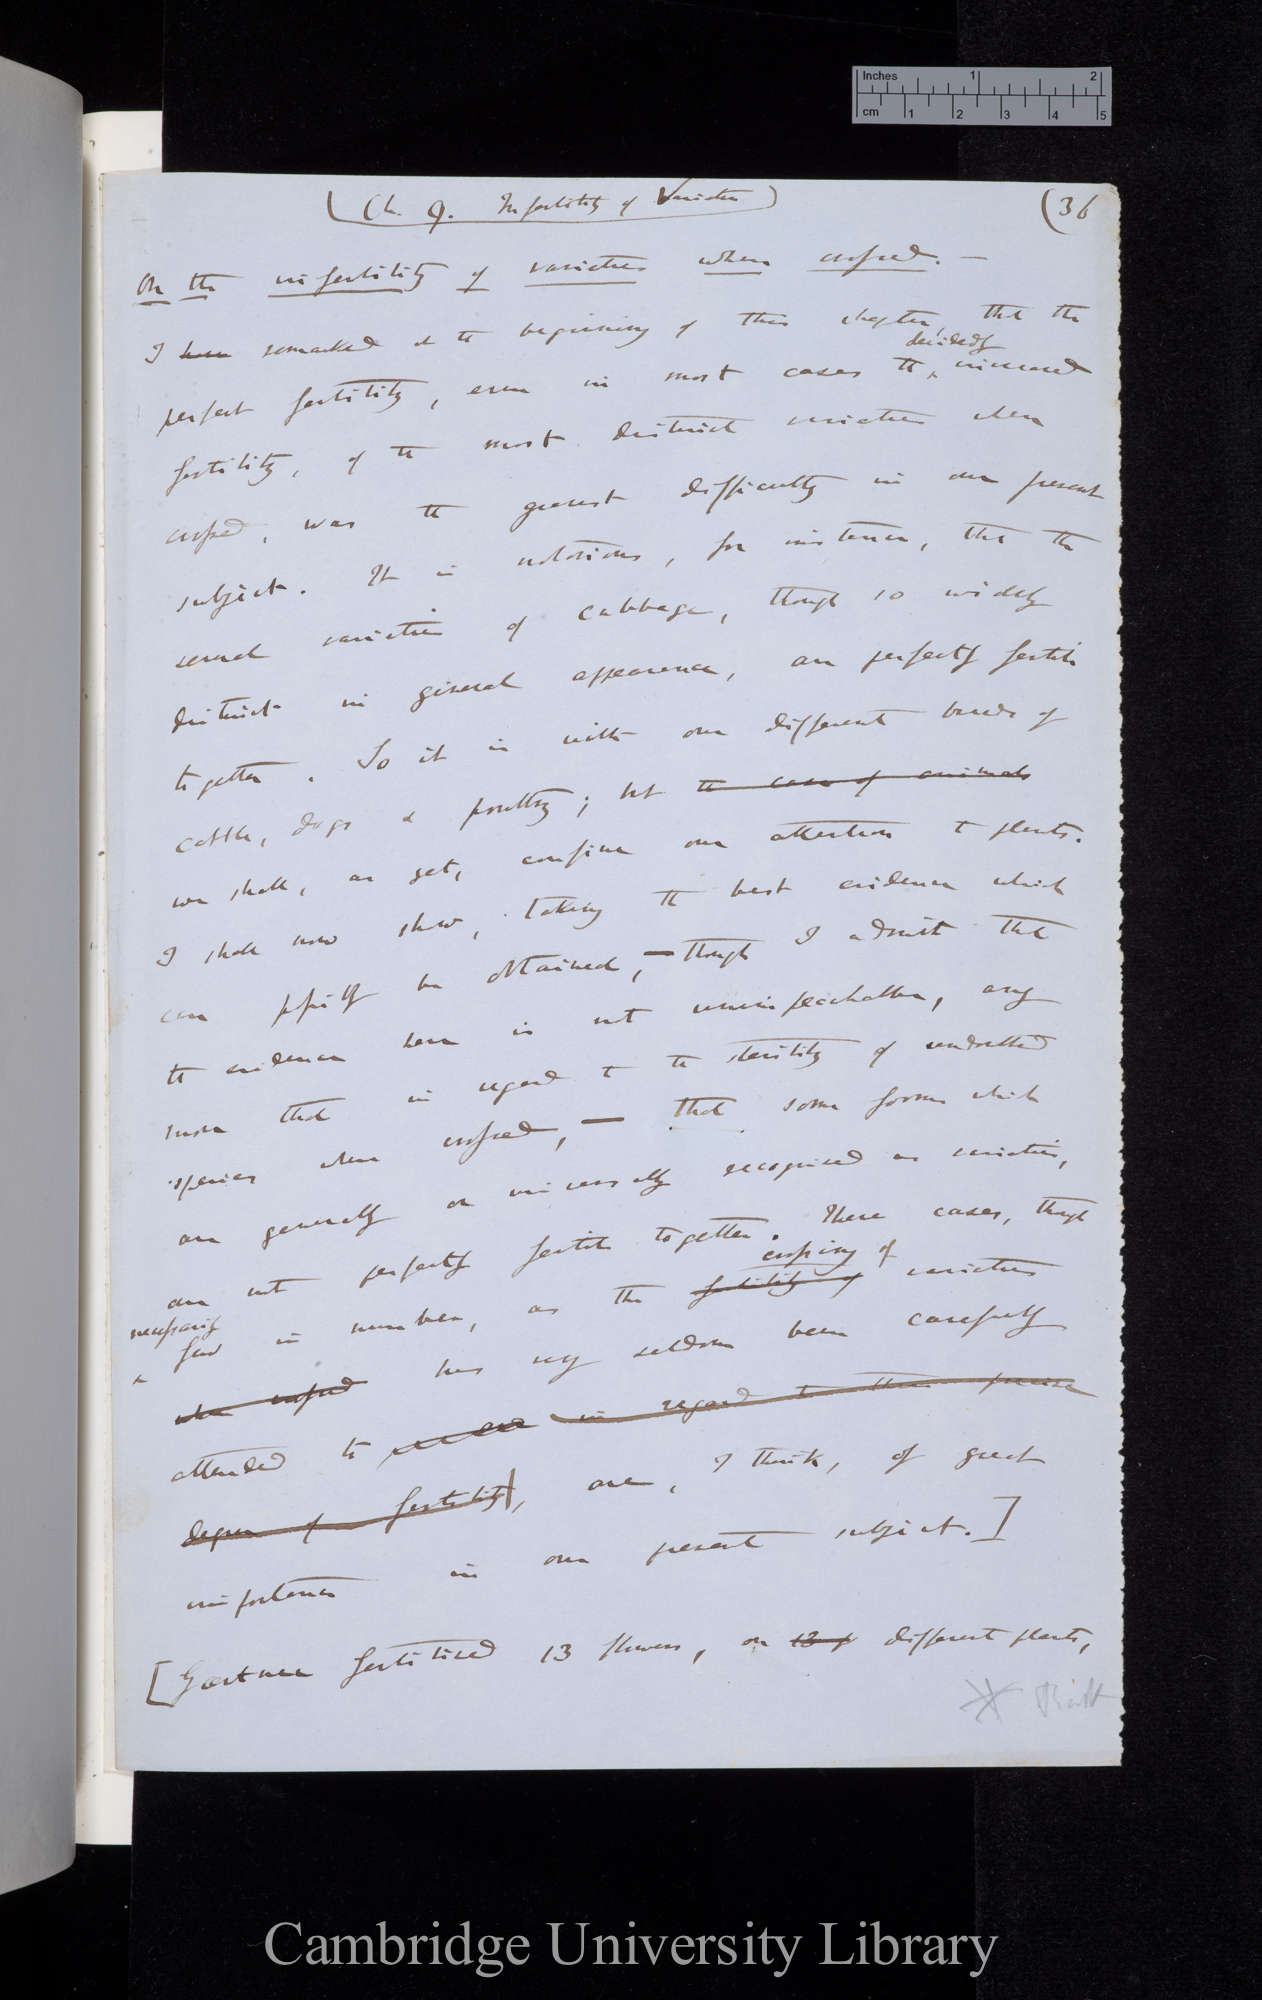 Inches 1 2
cm 1 2 3 4 5
(Ch. 9. Infertility of Varieties)
(36
On the infertility of varieties when crossed. —
I have remarked at the beginning of this chapter, that the
decidedly
perfect fertility, even in most cases the increased
fertility, of the most distinct varieties when
crossed, was the greatest difficulty in our present
subject. It is notorious, for instance, that the
several varieties of cabbage, though so widely
distinct in general appearance, are perfectly fertile
together. So it is with our different breeds of
cattle, dogs & poultry; but the case of animals
we shall, as yet, confine our attention to plants.
I shall now show, taking the best evidence which
can possibly be obtained, — though I admit that
the evidence here is not unimpeachable, any
more than in regard to the sterility of undoubted
species when crossed, — that some forms which
are generally or universally recognised as varieties,
are not perfectly fertile together. These cases, though
crossing of
necessarily
few in number, as the fertility of varieties
when crossed has very seldom been carefully
attended to in regard to their precise
degree of fertility, are, I think, of great
importance in our present subject.]
[Gærtner fertilised 13 flowers, on 13 different plants,
Cambridge University Library